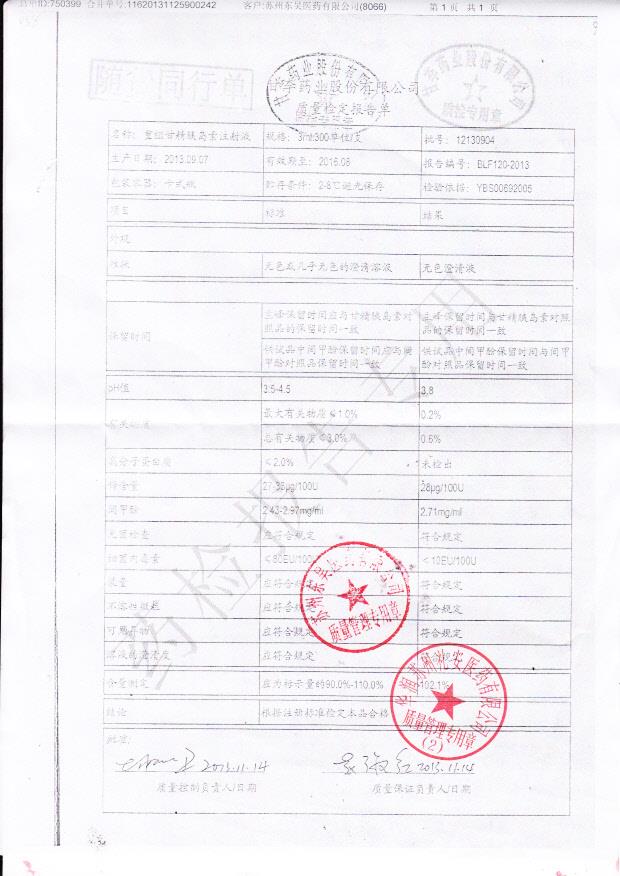 总单ID:750399 合计单号:11620131125900242 客户:苏州东吴医药有限公司(8066) 第1页 共1页
随货同行单
甘李药业股份有限公司
甘李药业股份有限公司
质检专用章
甘李药业股份有限公司
质量检定报告单
名称: 重组甘精胰岛素注射液 规格: 3ml:300单位/支 批号: 12130904
生产日期: 2013.09.07 有效期至: 2016.08 报告编号: BLF120-2013
包装容器: 卡式瓶 贮存条件: 2-8℃避光保存 检验依据: YBS00692005
项目 标准 结果
外观
性状 无色或几乎无色的澄清溶液 无色澄清液
保留时间
主峰保留时间应与甘精胰岛素对照品的保留时间一致 主峰保留时间与甘精胰岛素对照品的保留时间一致
供试品中间甲酚保留时间应与间甲酚对照品保留时间一致 供试品中间甲酚保留时间与间甲酚对照品保留时间一致
pH值 3.5-4.5 3.8
有关物质 最大有关物质≤1.0% 0.2%
总有关物质≤3.0% 0.6%
高分子蛋白质 ≤2.0% 未检出
锌含量 27-33μg/100U 28μg/100U
间甲酚 2.43-2.97mg/ml 2.71mg/ml
无菌检查 应符合规定 符合规定
细菌内毒素 ≤80EU/100U <10EU/100U
装量 应符合规定 符合规定
不溶性微粒 应符合规定 符合规定
可见异物 应符合规定 符合规定
溶液的澄清度 应符合规定 符合规定
含量测定 应为标示量的90.0%-110.0% 102.1%
结论 根据注册标准检定本品合格
批准:
2013.11.14 2013.11.14
质量控制负责人/日期 质量保证负责人/日期
苏州东吴医药有限公司
质量管理专用章
华润苏州礼安医药有限公司
质量管理专用章
(2)
药检报告专用